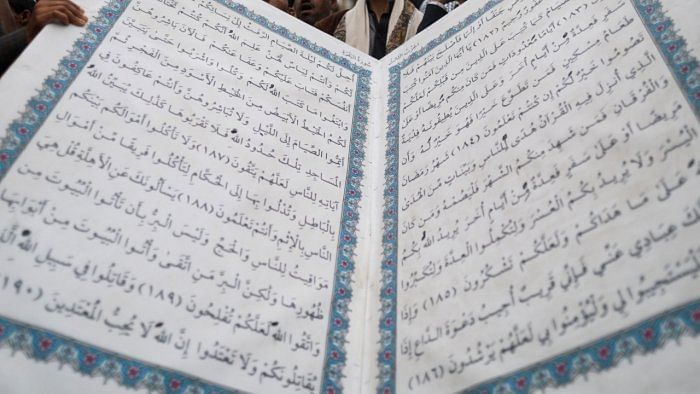 كُتِبَ عَلَيْكُمُ الصِّيَامُ كَمَا كُتِبَ عَلَى الَّذِينَ مِن قَبْلِكُمْ لَعَلَّكُمْ
(١٨٣) أَيَّامًا مَّعْدُودَاتٍ فَمَن كَانَ مِنكُم مَّرِيضًا أَوْ عَلَىٰ
سَفَرٍ فَعِدَّةٌ مِّنْ أَيَّامٍ أُخَرَ وَعَلَى الَّذِينَ يُطِيقُونَهُ فِدْيَةٌ
طَعَامُ مِسْكِينٍ فَمَن تَطَوَّعَ خَيْرًا فَهُوَ خَيْرٌ لَّهُ وَأَن
تَصُومُوا خَيْرٌ لَّكُمْ إِن كُنتُمْ تَعْلَمُونَ (١٨٤) شَهْرُ رَمَضَانَ
الَّذِي أُنزِلَ فِيهِ الْقُرْآنُ هُدًى لِّلنَّاسِ وَبَيِّنَاتٍ مِّنَ الْهُدَىٰ
وَالْفُرْقَانِ فَمَن شَهِدَ مِنكُمُ الشَّهْرَ فَلْيَصُمْهُ وَمَن كَانَ
مَرِيضًا أَوْ عَلَىٰ سَفَرٍ فَعِدَّةٌ مِّنْ أَيَّامٍ أُخَرَ يُرِيدُ اللَّهُ بِكُمُ
الْيُسْرَ وَلَا يُرِيدُ بِكُمُ الْعُسْرَ وَلِتُكْمِلُوا الْعِدَّةَ وَلِتُكَبِّرُوا
عَلَىٰ مَا هَدَاكُمْ وَلَعَلَّكُمْ تَشْكُرُونَ (١٨٥) وَإِذَا
عِبَادِي عَنِّي فَإِنِّي قَرِيبٌ أُجِيبُ دَعْوَةَ الدَّاعِ إِذَا
فَلْيَسْتَجِيبُوا لِي وَلْيُؤْمِنُوا بِي لَعَلَّهُمْ يَرْشُدُونَ (١٨٦)
أُحِلَّ لَكُمْ لَيْلَةَ الصِّيَامِ الرَّفَثُ إِلَىٰ نِسَائِكُمْ هُنَّ لِبَاسٌ
لَّكُمْ وَأَنتُمْ لِبَاسٌ لَّهُنَّ عَلِمَ اللَّهُ أَنَّكُمْ كُنتُمْ تَخْتَانُونَ
أَنفُسَكُمْ فَتَابَ عَلَيْكُمْ وَعَفَا عَنكُمْ فَالْآنَ بَاشِرُوهُنَّ
وَابْتَغُوا مَا كَتَبَ اللَّهُ لَكُمْ وَكُلُوا وَاشْرَبُوا حَتَّىٰ يَتَبَيَّنَ
لَكُمُ الْخَيْطُ الْأَبْيَضُ مِنَ الْخَيْطِ الْأَسْوَدِ مِنَ الْفَجْرِ ثُمَّ
أَتِمُّوا الصِّيَامَ إِلَى اللَّيْلِ وَلَا تُبَاشِرُوهُنَّ وَأَنتُمْ عَاكِفُونَ فِي
الْمَسَاجِدِ تِلْكَ حُدُودُ اللَّهِ فَلَا تَقْرَبُوهَا كَذَٰلِكَ يُبَيِّنُ اللَّهُ
آيَاتِهِ لِلنَّاسِ لَعَلَّهُمْ يَتَّقُونَ (١٨٧) وَلَا تَأْكُلُوا أَمْوَالَكُم بَيْنَكُم
بِالْبَاطِلِ وَتُدْلُوا بِهَا إِلَى الْحُكَّامِ لِتَأْكُلُوا فَرِيقًا مِّنْ أَمْوَالِ
النَّاسِ بِالْإِثْمِ وَأَنتُمْ تَعْلَمُونَ (١٨٨) يَسْأَلُونَكَ عَنِ الْأَهِلَّةِ قُلْ هِيَ
مَوَاقِيتُ لِلنَّاسِ وَالْحَجِّ وَلَيْسَ الْبِرُّ بِأَن تَأْتُوا الْبُيُوتَ مِن
ظُهُورِهَا وَلَٰكِنَّ الْبِرَّ مَنِ اتَّقَىٰ وَأْتُوا الْبُيُوتَ مِنْ أَبْوَابِهَا
وَاتَّقُوا اللَّهَ لَعَلَّكُمْ تُفْلِحُونَ (١٨٩) وَقَاتِلُوا فِي سَبِيلِ اللَّهِ الَّذِينَ
يُقَاتِلُونَكُمْ وَلَا تَعْتَدُوا إِنَّ اللَّهَ لَا يُحِبُّ الْمُعْتَدِينَ (١٩٠)